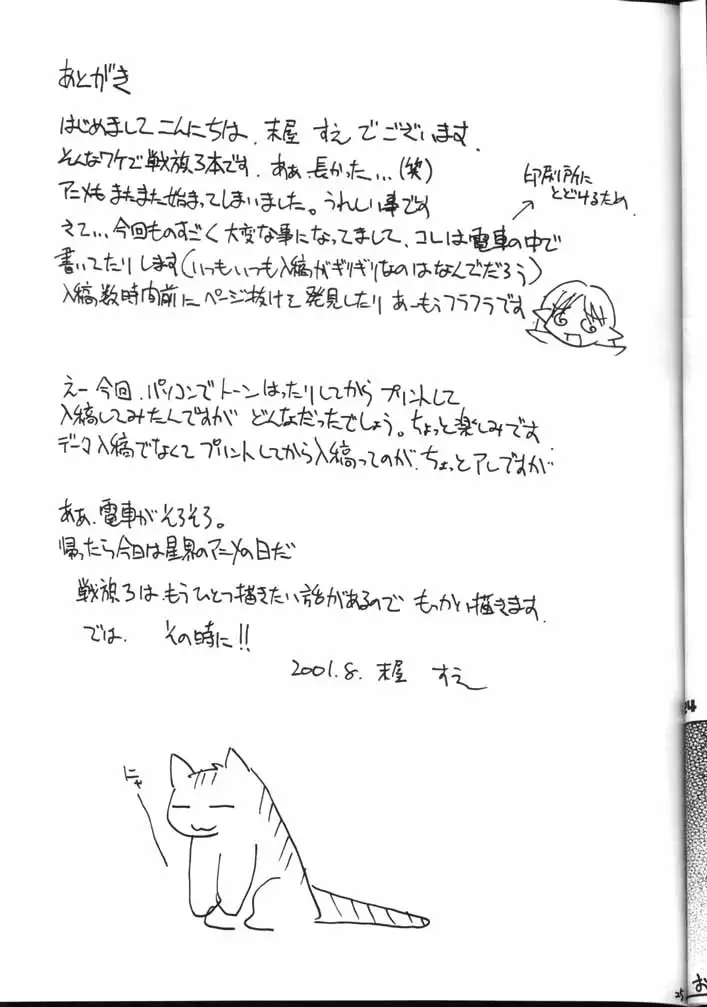 あとがき
はじめまして こんにちは、末屋 すえ でございます.
そんなワケで戦旗3本です. あぁ 長かった…(笑)
アニメも またまた始まってしまいました。うれしい事です
さて… 今回ものすごく大変な事になってまして、コレは電車の中で
書いてたりします(いつもいつも入稿がギリギリなのはなんでだろう)
入稿数時間前にページ抜けて発見したり あーもうフラフラです
印刷所に
とどけるため.
えー 今回、パソコンで トーン はったりしてから プリントして
入稿してみたんですが どんなだったでしょう。ちょっと楽しみです
データ入稿でなくて プリントしてから入稿ってのが、ちょっとアレですが
あぁ、電車が そろそろ。
帰ったら今日は星界のアニメの日だ
戦旗3は もうひとつ描きたい話があるので もっかい描きます.
では、 その時に!!
2001.8. 末屋 すえ
にゃ
25